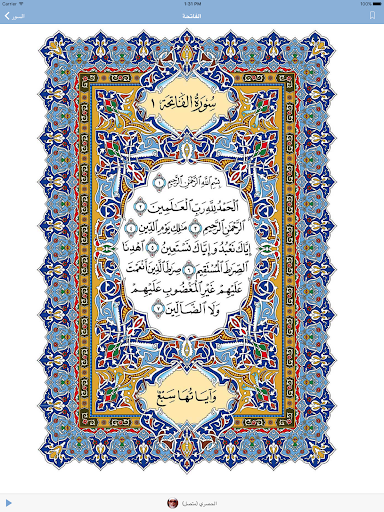 Carrier 1:35 PM 100%
السور الفاتحة
سُورَةُ الفَاتِحَةِ ١
بِسْمِ اللَّهِ الرَّحْمَٰنِ الرَّحِيمِ ١
الْحَمْدُ لِلَّهِ رَبِّ الْعَالَمِينَ ٢
الرَّحْمَٰنِ الرَّحِيمِ ٣ مَالِكِ يَوْمِ الدِّينِ ٤
إِيَّاكَ نَعْبُدُ وَإِيَّاكَ نَسْتَعِينُ ٥ اهْدِنَا
الصِّرَاطَ الْمُسْتَقِيمَ ٦ صِرَاطَ الَّذِينَ أَنْعَمْتَ
عَلَيْهِمْ غَيْرِ الْمَغْضُوبِ عَلَيْهِمْ
وَلَا الضَّالِّينَ ٧
وَآيَاتُهَا سَبْعٌ
المنصري (متصل)